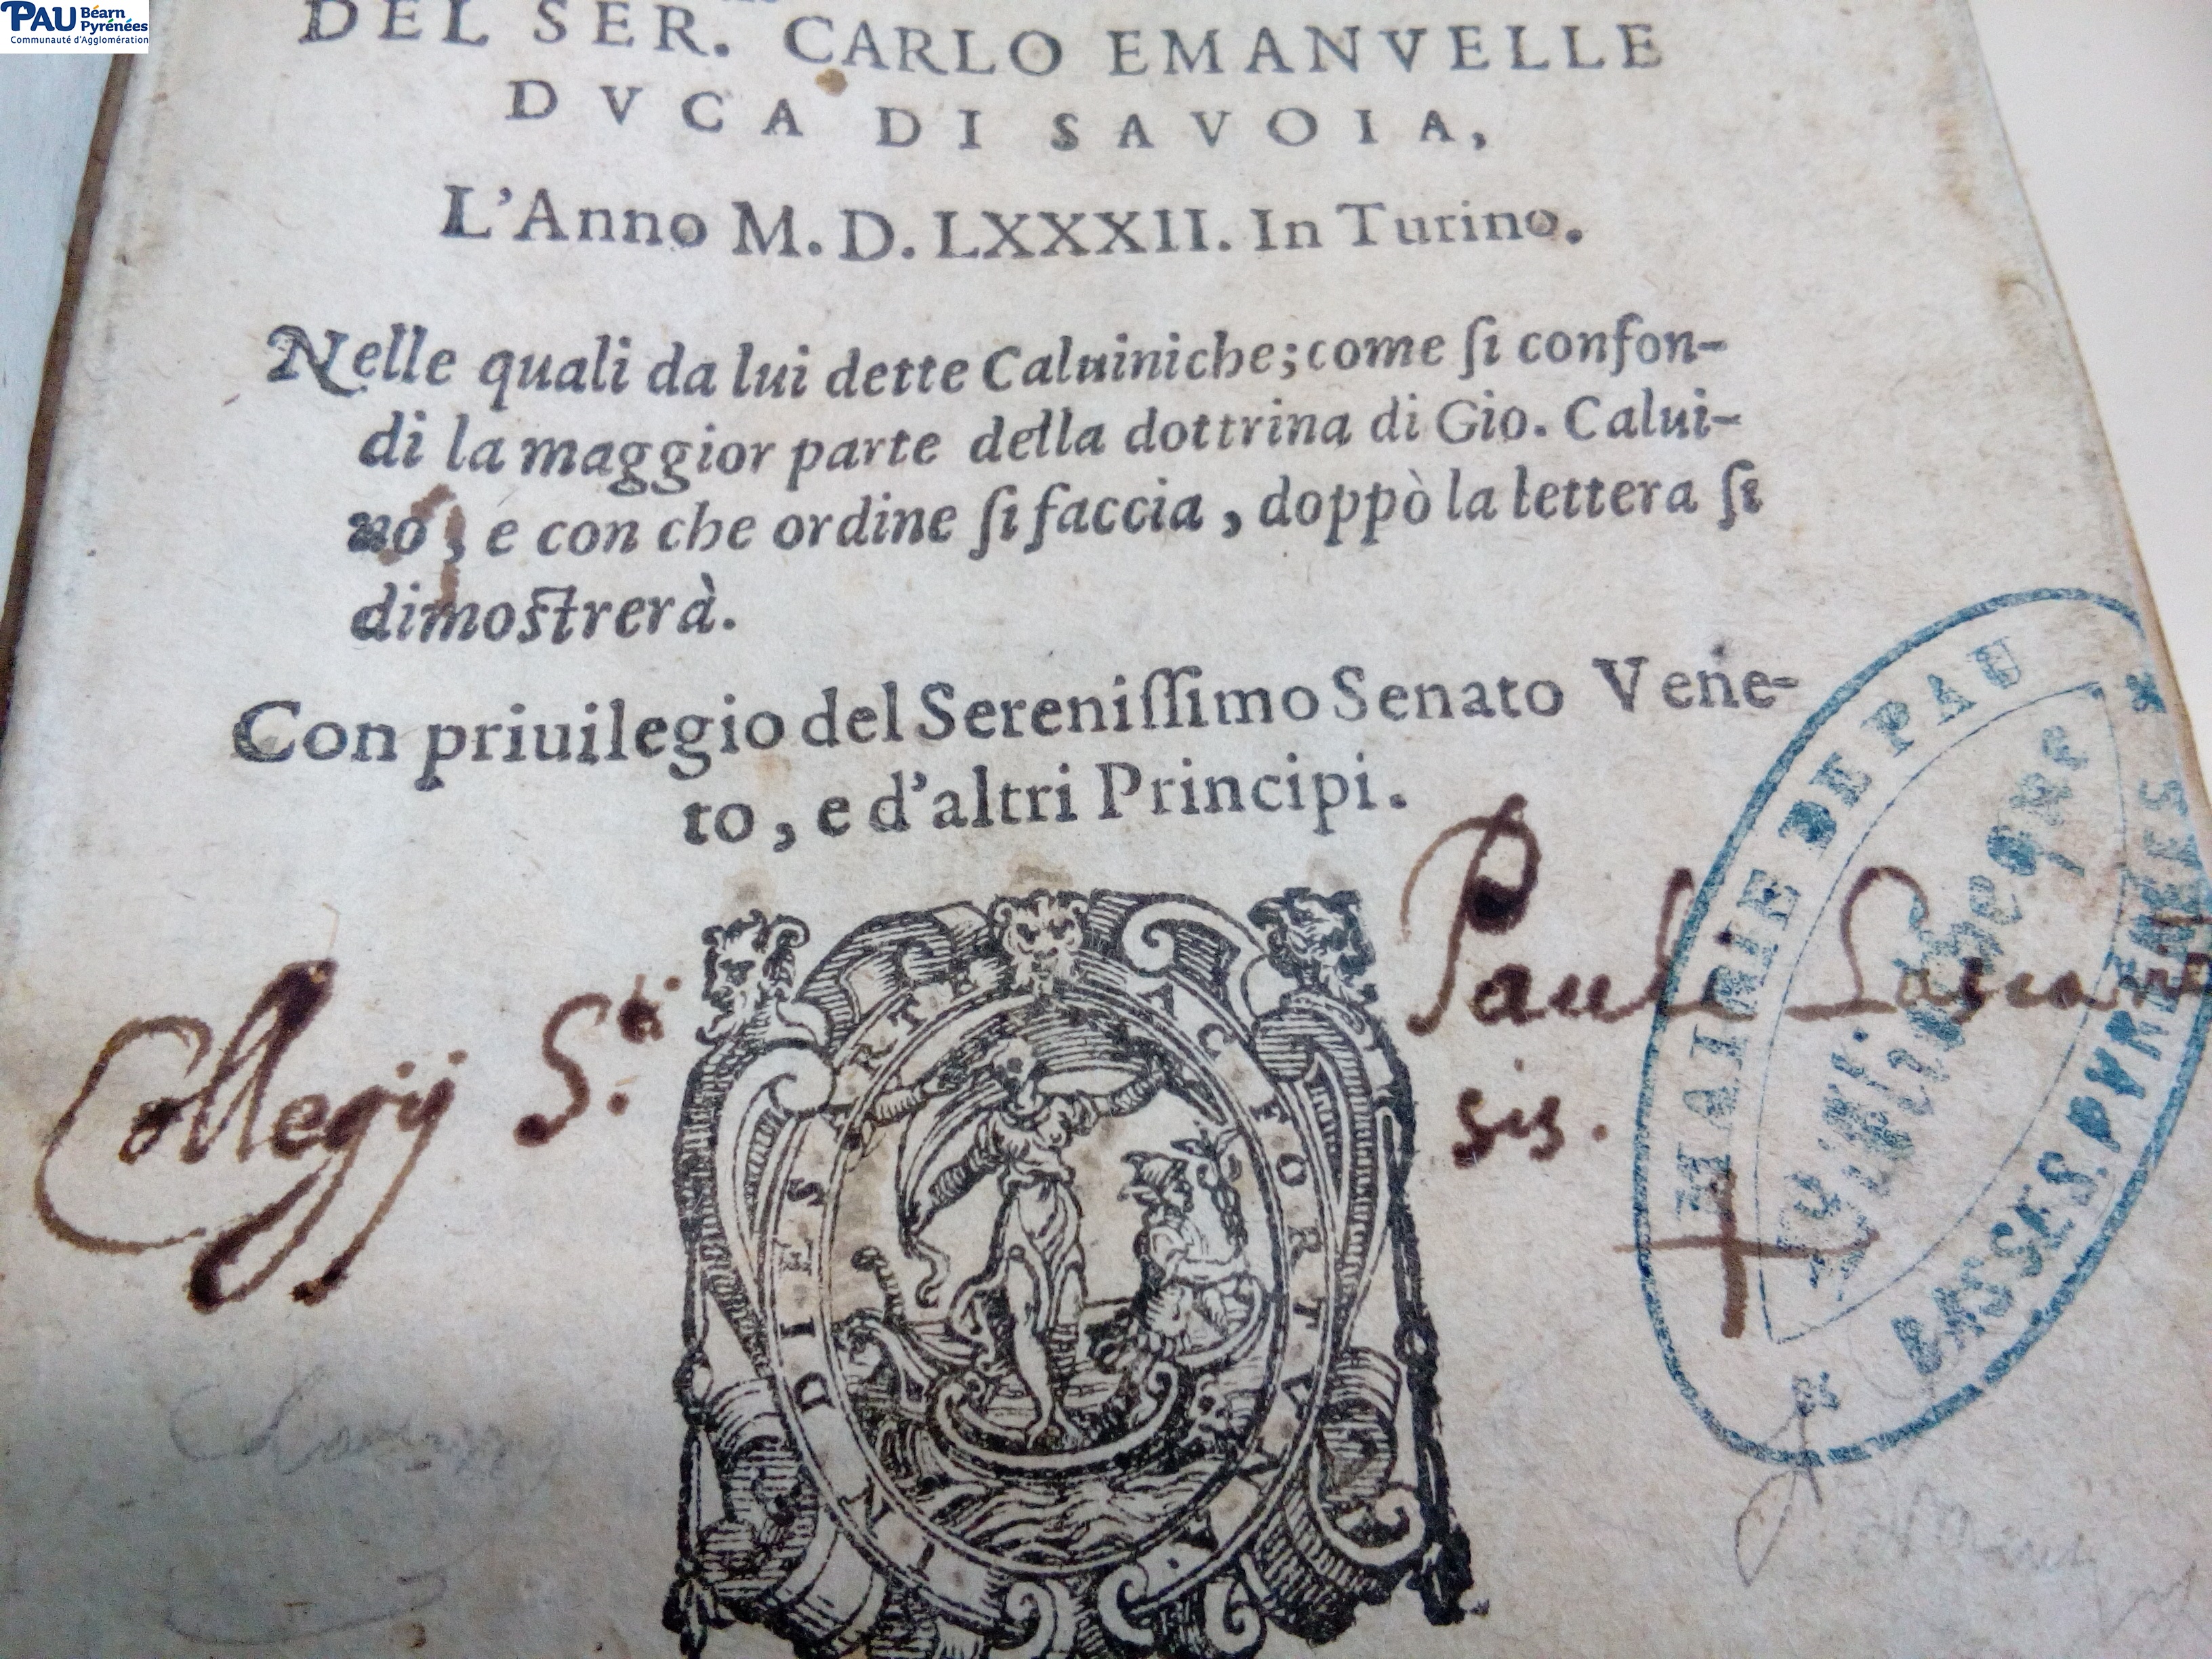 PAU Béarn
Pyrénées
Communauté d'Agglomération
DEL SER. CARLO EMANVELLE
DVCA DI SAVOIA,
L'Anno M. D. LXXXII. In Turino.
Nelle quali da lui dette Caluiniche; come ſi confon-
di la maggior parte della dottrina di Gio. Calui-
no, e con che ordine ſi faccia, doppò la lettera ſi
dimoſtrerà.
Con priuilegio del Sereniſſimo Senato Vene-
to, e d'altri Principi.
Collegij S.ti Pauli Lascarien
sis.
DIES
MAIRIE DE PAU
Bibliothèque
BASSES PYRÉNÉES